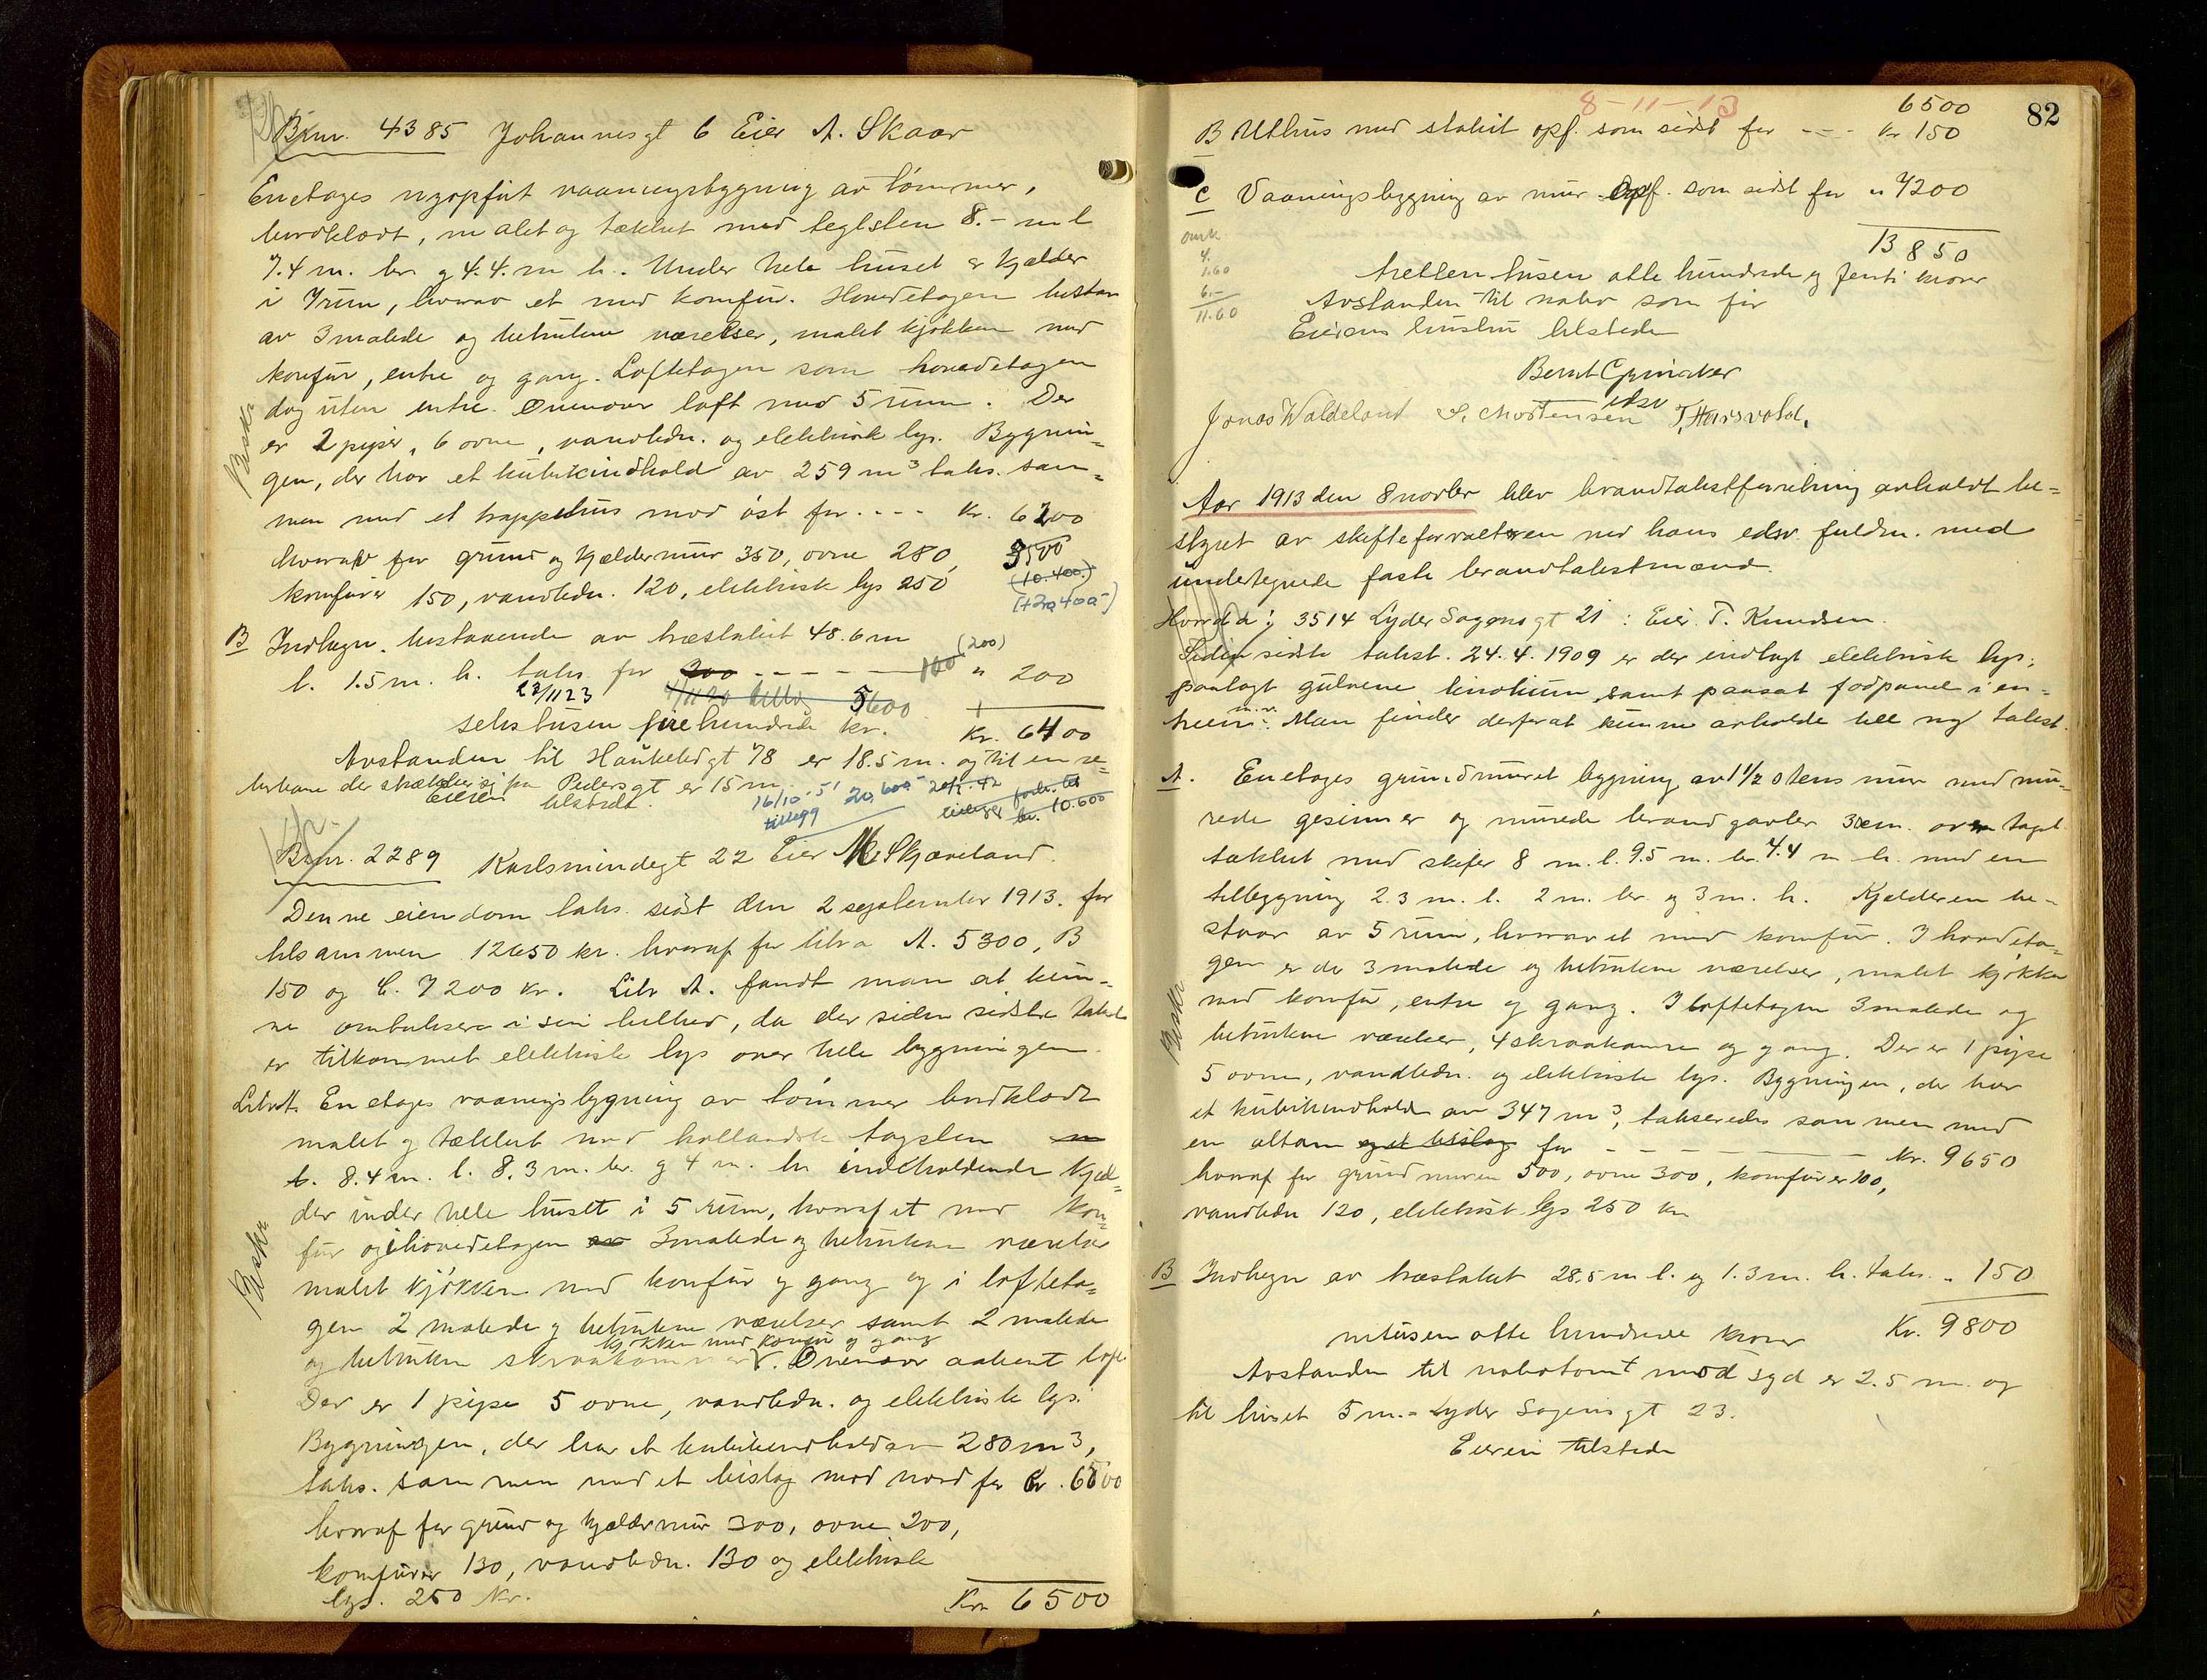 Brnr. 4385 Johannesgt 6 Eier A. Skaar
Enetages nyopført vaaningsbygning av tømmer,
bordklædt, malet og tækket med teglsten 8.- m l
7.4 m. br. og 4.4. m h. Under hele huset er kjælder
i 7 rum, hvorav et med komfur. Hovedetagen bestaar
av 3 malede og betrukne værelser, malet kjøkken med
komfur, entre og gang. Loftetagen som hovedetagen
dog uten entre. Ovenover loft med 5 rum. Der
er 2 piper, 6 ovne, vandledn. og elektrisk lys. Bygnin=
Beskr
gen, der har et kubikindhold av 259 m³ taks. sam=
men med et trappehus mod øst for .... Kr. 6200
hvorav for grund og kjældermur 350, ovne 280,
komfurer 150, vandledn. 120, elektrisk lys 250
(10.400.)
(+20400-)
B Indhegn. bestaaende av træstakit 48.6 m
l. 1.5 m. h. taks for 200 - - - - 100 (200) " 200
22/11 23 5600
sekstusen firehundrede kr. Kr. 6400
Avstanden til Haukeligt 78 er 18.5 m. og til en re=
berbane der strækker sig fra Pedersgt er 15 m.
Eieren tilstede.
16/10-51 20,600 tillegg
10.600
Brnr. 2289 Karlsmindegt 22 Eier M. Skjæveland.
Denne eiendom taks. sidst den 2 september 1913. for
tilsammen 12650 kr. hvoraf for litra A. 5300, B
150 og C. 7200 kr. Litr A. fandt man at kun=
ne omtaksere i sin helhed, da der siden sidste takst
er tilkommet elektrisk lys over hele bygningen.
Litr A. En etages vaaningsbygning av tømmer bordklædt
malet og tækket med hollandsk tagsten
8.4 m. l. 8.3 m. br. og 4 m. h. indeholdende kjæl=
der under hele huset i 5 rum, hvoraf et med kom=
fur og i hovedetagen 3 malede og betrukne værelser
Beskr
malet kjøkken med komfur og gang og i lofteta=
gen 2 malede og betrukne værelser samt 2 malede
kjøkken med komfur og gang
og betrukne skraakammer. Ovenover aabent loft
Der er 1 pipe 5 ovne, vandledn. og elektrisk lys.
Bygningen, der har et kubikindhold av 280 m³,
taks. sammen med et bislag mod nord for Kr. 6500
hvoraf for grund og kjældermur 300, ovne 200,
komfurer 130, vandledn. 130 og elektrisk
lys. 250 Kr. Kr. 6500
82
8-11-13
6500
B Uthus med stakit opf. som sidst for --- Kr 150
C Vaaningsbygning av mur opf. som sidst for " 7200
13850
omk
4.
1.60
6.-
11.60
tretten tusen otte hundrede og femti kroner
Avstanden til nabo som før
Eierens hustru tilstede
Bernt Grinaker
edsv
Jonas Waldeland S. Mortensen T. Haarvold.
Aar 1913 den 8 novbr blev brandtakstforretning avholdt be=
styret av skifteforvalteren ved hans edsv. fuldm. med
undertegnede faste brandtakstmænd.
Hvorda: 3514 Lyder Sagensgt 21: Eier T. Knudsen.
Siden sidste takst. 24.4.1909 er der indlagt elektrisk lys;
paalagt gulvene linolium, samt paasat fodpanel i en=
treen m.v. Man finder derfor at kunne avholde hel ny takst.
A. Enetages grundmuret bygning av 1½ stens mur med mu=
rede gesimser og murede brandgavler 30cm. over taget
tækket med skifer 8 m. l. 9.5 m. br. 4.4 m h. med en
tilbygning 2.3 m. l. 2 m. br. og 3 m. h. Kjælderen be=
staar av 5 rum, hvorav et med komfur. I hovedeta=
gen er der 3 malede og betrukne værelser, malet kjøkken
Beskr
med komfur, entre og gang. I loftetagen 3 malede og
betrukne værelser, 4 skraakamre og gang. Der er 1 pipe
5 ovne, vandledn. og elektrisk lys. Bygningen, der har
et kubikindhold av 347 m³, takseredes sammen med
en altan og et bislag for - - - - Kr. 9650
hvoraf for grundmuren 500, ovne 300, komfurer 100,
vandledn 120, elektrisk lys 250 kr
B Indhegn av træstakit 28.5 m l. og 1.3 m. h. taks. " 150
nitusen otte hundrede kroner Kr. 9800
Avstanden til nabotomt mod syd er 2.5 m. og
til huset 5 m. = Lyder Sagensgt 23.
Eieren tilstede